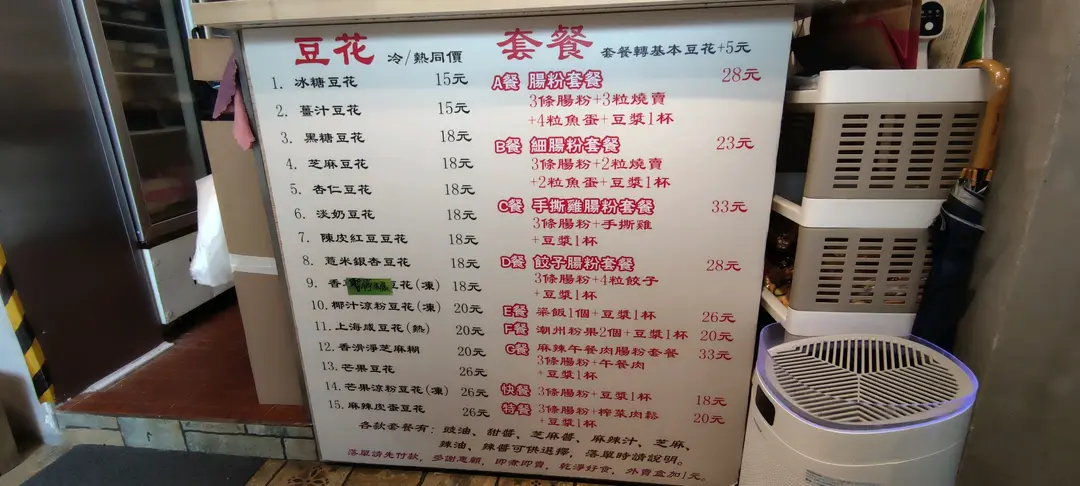 豆花 冷/熱同價
1. 冰糖豆花 15元
2. 薑汁豆花 15元
3. 黑糖豆花 18元
4. 芝麻豆花 18元
5. 杏仁豆花 18元
6. 淡奶豆花 18元
7. 陳皮紅豆豆花 18元
8. 薏米銀杏豆花 18元
9. 香 豆花(凍) 18元
10. 椰汁涼粉豆花(凍) 20元
11. 上海咸豆花(熱) 20元
12. 香滑淨芝麻糊 20元
13. 芒果豆花 26元
14. 芒果涼粉豆花(凍) 26元
15. 麻辣皮蛋豆花 26元
套餐 套餐轉基本豆花+5元
A餐 腸粉套餐 28元
3條腸粉+3粒燒賣
+4粒魚蛋+豆漿1杯
B餐 細腸粉套餐 23元
3條腸粉+2粒燒賣
+2粒魚蛋+豆漿1杯
C餐 手撕雞腸粉套餐 33元
3條腸粉+手撕雞
+豆漿1杯
D餐 餃子腸粉套餐 28元
3條腸粉+4粒餃子
+豆漿1杯
E餐 粢飯1個+豆漿1杯 26元
F餐 潮州粉果2個+豆漿1杯 20元
G餐 麻辣午餐肉腸粉套餐 33元
3條腸粉+午餐肉
+豆漿1杯
快餐 3條腸粉+豆漿1杯 18元
特餐 3條腸粉+榨菜肉鬆
+豆漿1杯 20元
各款套餐有：豉油、甜醬、芝麻醬、麻辣汁、芝麻、
辣油、辣醬可供選擇，落單時請說明。
落單請先付款，多謝惠顧，即煮即賣，乾淨好食，外賣盒加1元。